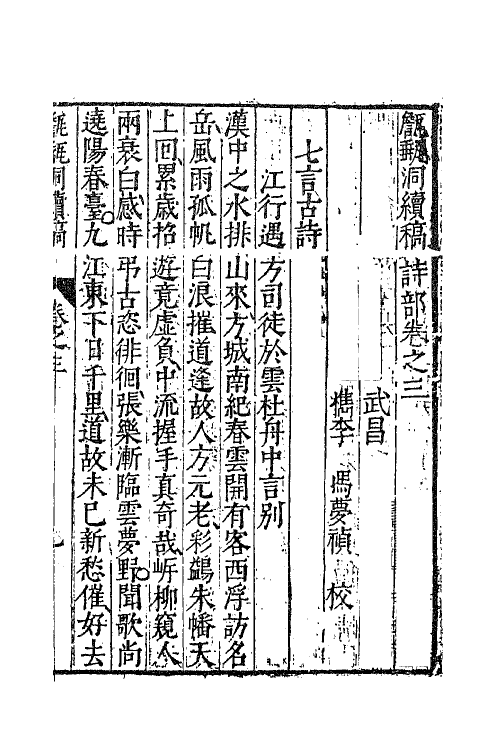 甔甀洞續稿 詩部卷之三
武昌
檇李 馮夢禎 校
七言古詩
江行遇方司徒於雲杜舟中言別
漢中之水排山來方城南紀春雲開有客西浮訪名
岳風雨孤帆白浪摧道逢故人方元老彩鷁朱幡天
上回累歲招遊竟虛負中流握手真奇哉岸柳窺人
兩衰白感時弔古恣徘徊張樂漸臨雲夢野聞歌尚
遶陽春臺九江東下日千里道故未已新愁催好去
甔甀洞續稿 卷之三